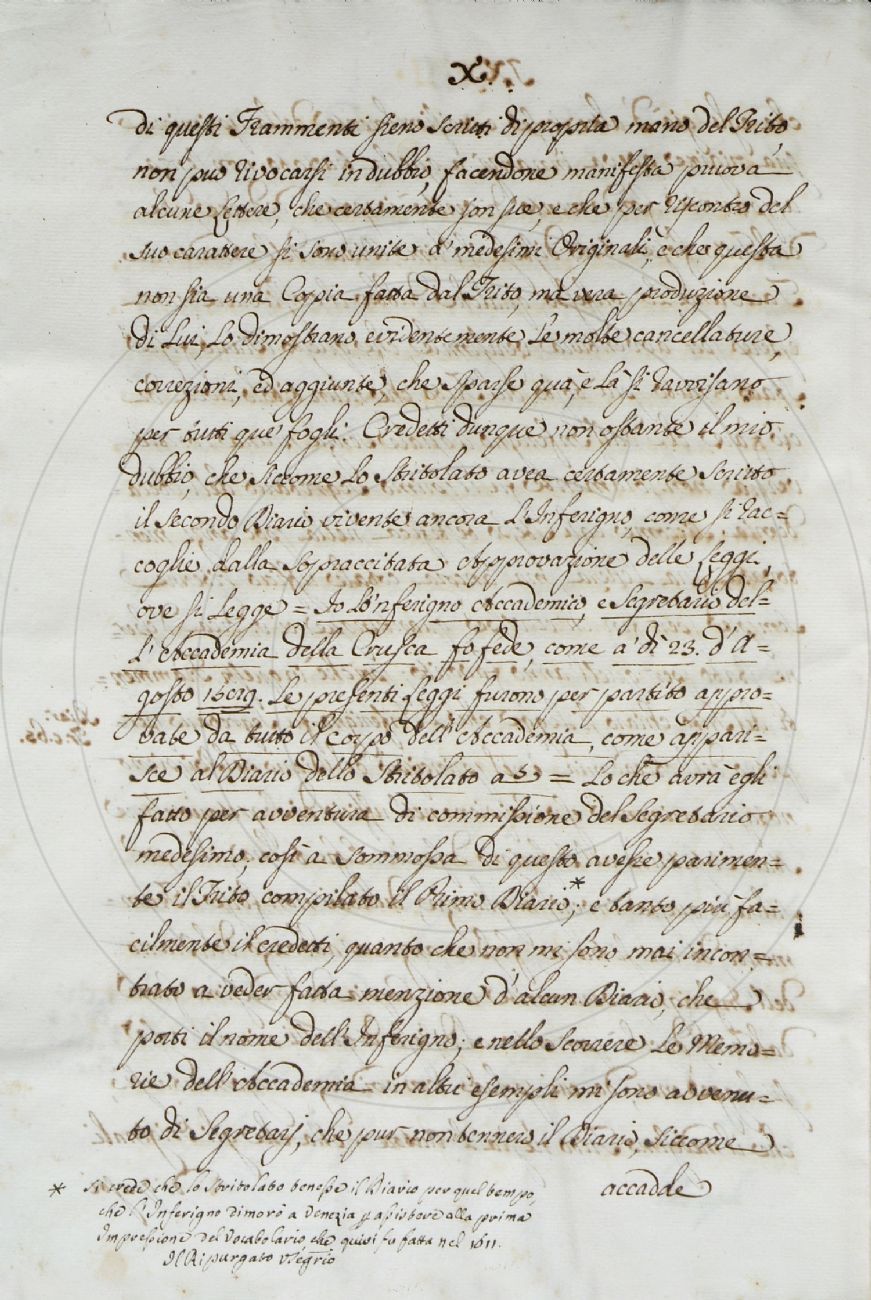 X.
di questi Frammenti sieno scritti di propria mano del Trito,
non può rivocarsi in dubbio, facendone manifesta pruova
alcune Lettere, che certamente son sue, e che per riscontro del
suo carattere si sono unite a' medesimi Originali; e che questa
non sia una Copia fatta dal Trito, ma vera produzione
di Lui, Lo dimostrano evidentemente Le molte cancellature,
correzioni, ed aggiunte, che sparse quà, e Là si ravvisano
per tutti que' fogli. Credetti dunque non ostante il mio
dubbio, che siccome Lo Stritolato avea certamente scritto
il secondo Diario vivente ancora L'Inferigno, come si rac=
coglie dalla sopraccitata Approvazione delle Leggi,
ove si Legge = Io Lo'nferigno Accademico, e Segretario del=
L'Accademia della Crusca fo fede, come a' dì 23. d'A=
gosto 1589. Le presenti Leggi furono per partito appro=
vate da tutto il Corpo dell'Accademia, come appari=
sce al Diario dello Stritolato a 5 = Lo che avrà egli
fatto per avventura di commissione del Segretario
medesimo, così a sommossa di questo avesse parimen=
te il Trito compilato il Primo Diario*; e tanto più fa=
cilmente il credetti, quanto che non mi sono mai incon=
trato a veder fatta menzione d'alcun Diario, che
porti il nome dell'Inferigno; e nello scorrere Le Memo=
rie dell'Accademia in altri esempli mi sono avvenu=
to di Segretarj, che pur non tennero il Diario, siccome
accadde
* Si crede che lo Stritolato tenesse il Diario per quel tempo,
che l'Inferigno dimorò a Venezia p assistere alla prima
Impressione del Vocabolario che quivi fu fatta nel 1611.
Il Ripurgato Segrio